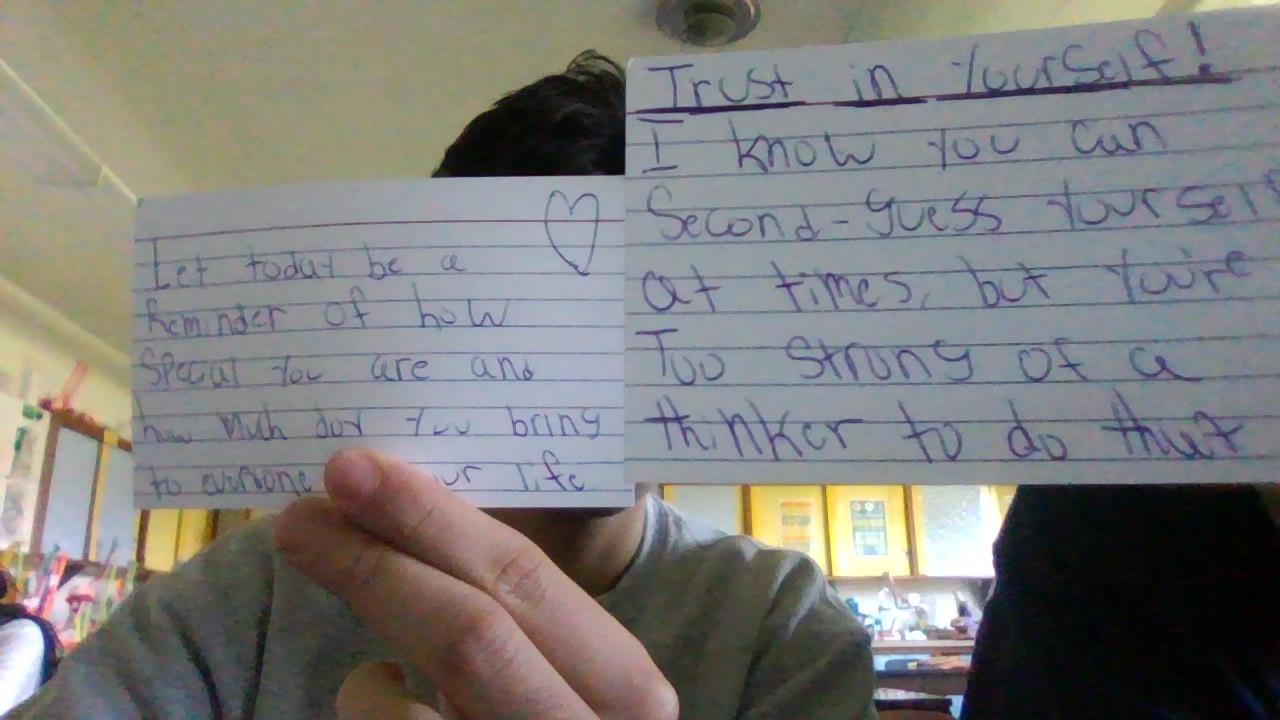 Let today be a
Reminder of how
Special you are and
how much joy you bring
to everyone ur life
Trust in Yourself!
I know you can
Second-guess yourself
at times, but you're
Too strong of a
thinker to do that